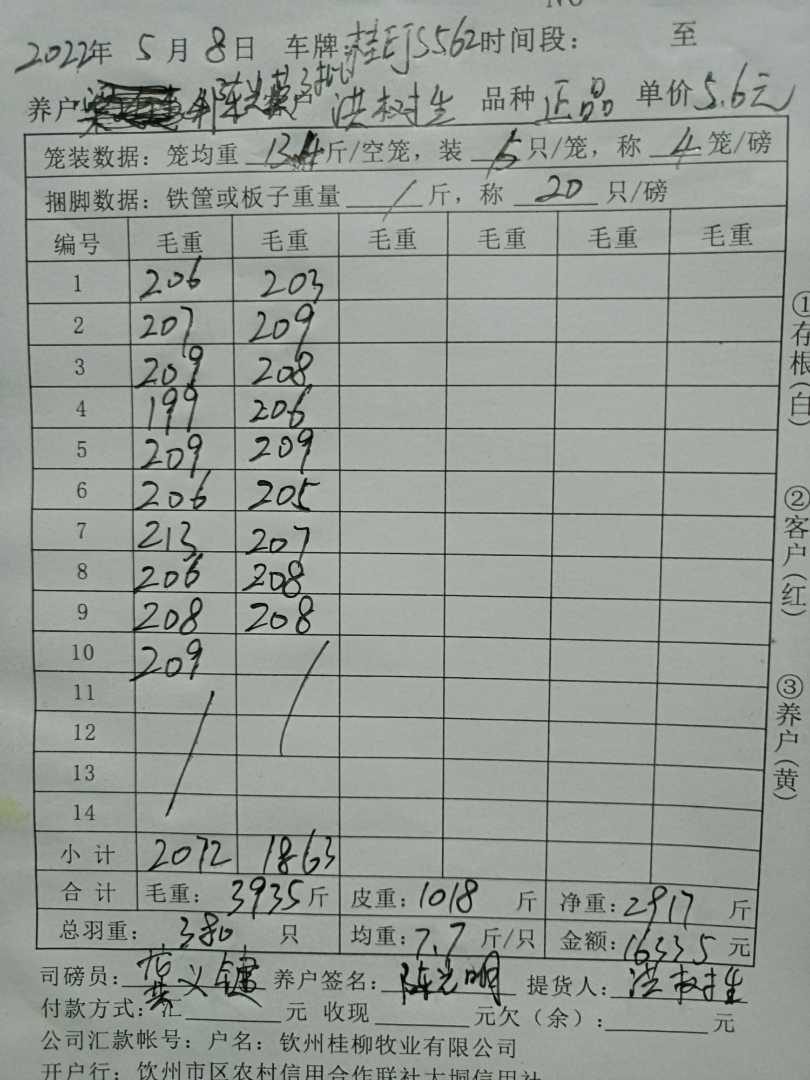 NO
2022年 5月 8日 车牌:桂EJS562时间段: 至
养户 客户 洪树生 品种 正品 单价5.6元
笼装数据:笼均重 13.4斤/空笼,装 5只/笼,称 4笼/磅
捆脚数据:铁筐或板子重量 / 斤,称 20 只/磅
编号 毛重 毛重 毛重 毛重 毛重 毛重
1 206 203
2 207 209
3 209 208
4 199 206
5 209 209
6 206 205
7 213 207
8 206 208
9 208 208
10 209
11
12
13
14
小计 2072 1863
合计 毛重:3935斤 皮重:1018 斤 净重:2917 斤
总羽重:380 只 均重:7.7斤/只 金额:16335元
司磅员:黄义健 养户签名:陈光明 提货人:洪树生
付款方式:汇 元 收现 元欠(余): 元
公司汇款帐号:户名:钦州桂柳牧业有限公司
开户行:钦州市区农村信用合作联社大垌信用社
①存根(白)
②客户(红)
③养户(黄)